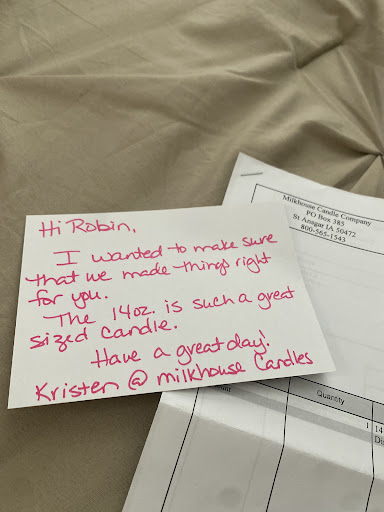 Hi Robin,
I wanted to make sure
that we made things right
for you.
The 14oz. is such a great
sized candle.
Have a great day!
Kristen @ milkhouse Candles
Milkhouse Candle Company
PO Box 385
St Ansgar IA 50472
800-565-1543
Quantity
1
14